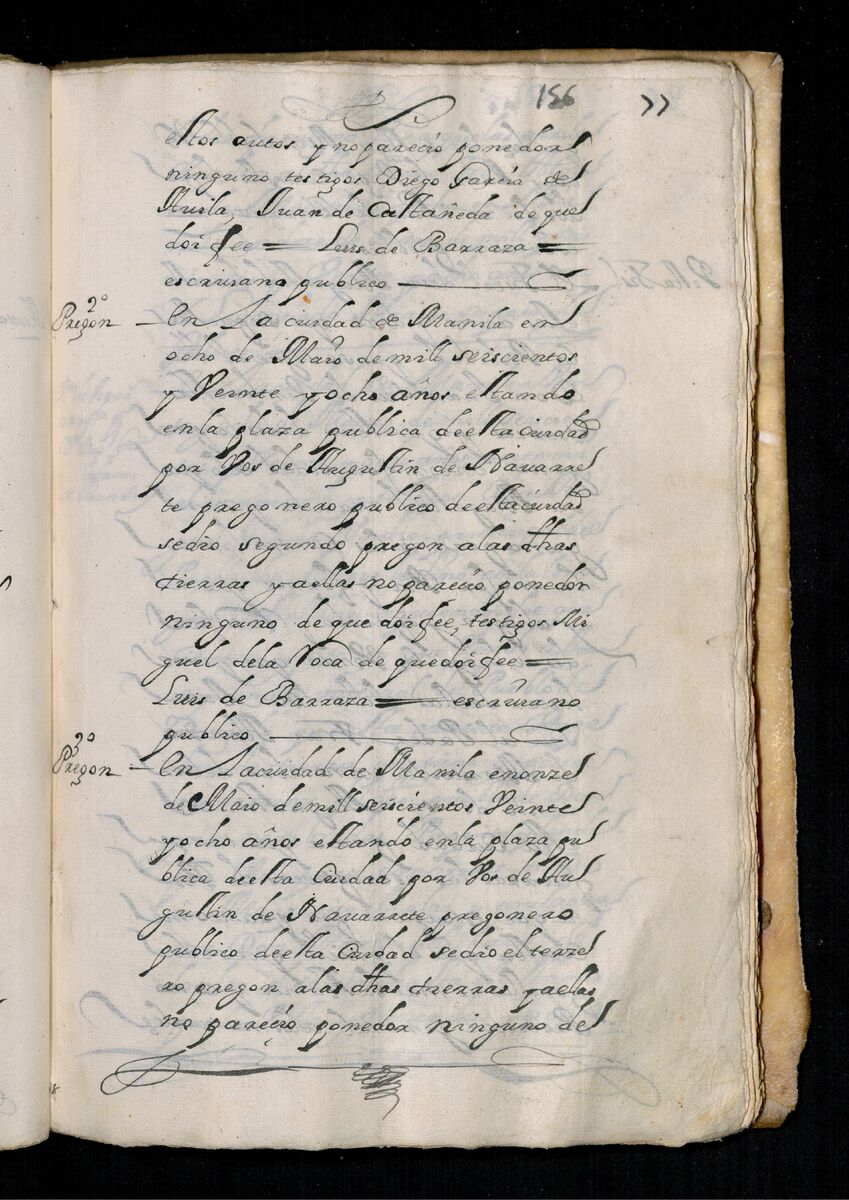 156 77
estos autos y no pareçio ponedor
ninguno testigos Diego Garçia de
Auila, Juan de Castañeda de que
doi fee = Luis de Barraza =
escriuano publico
2º
Pregon
En La ciudad de Manila en
ocho de Maio de mill seiscientos
y Veinte y ocho años estando
en la plaza publica de esta ciudad
por Vos de Augustin de Navarre
te pregonero publico de esta ciudad
se dio segundo pregon a las dhas
tierras y a ellas no pareçio ponedor
ninguno de que doi fee, testigos Mi
guel de la Roca de que doi fee =
Luis de Barraza = escriuano
publico
3º
Pregon
En La ciudad de Manila en onze
de Maio de mill seiscientos Veinte
y ocho años estando en la plaza pu
blica de esta Ciudad por Vos de Au
gustin de Nauarrete pregonero
publico de esta Ciudad se dio el terze
ro pregon a las dhas tierras y a ellas
no pareçio ponedor ninguno de